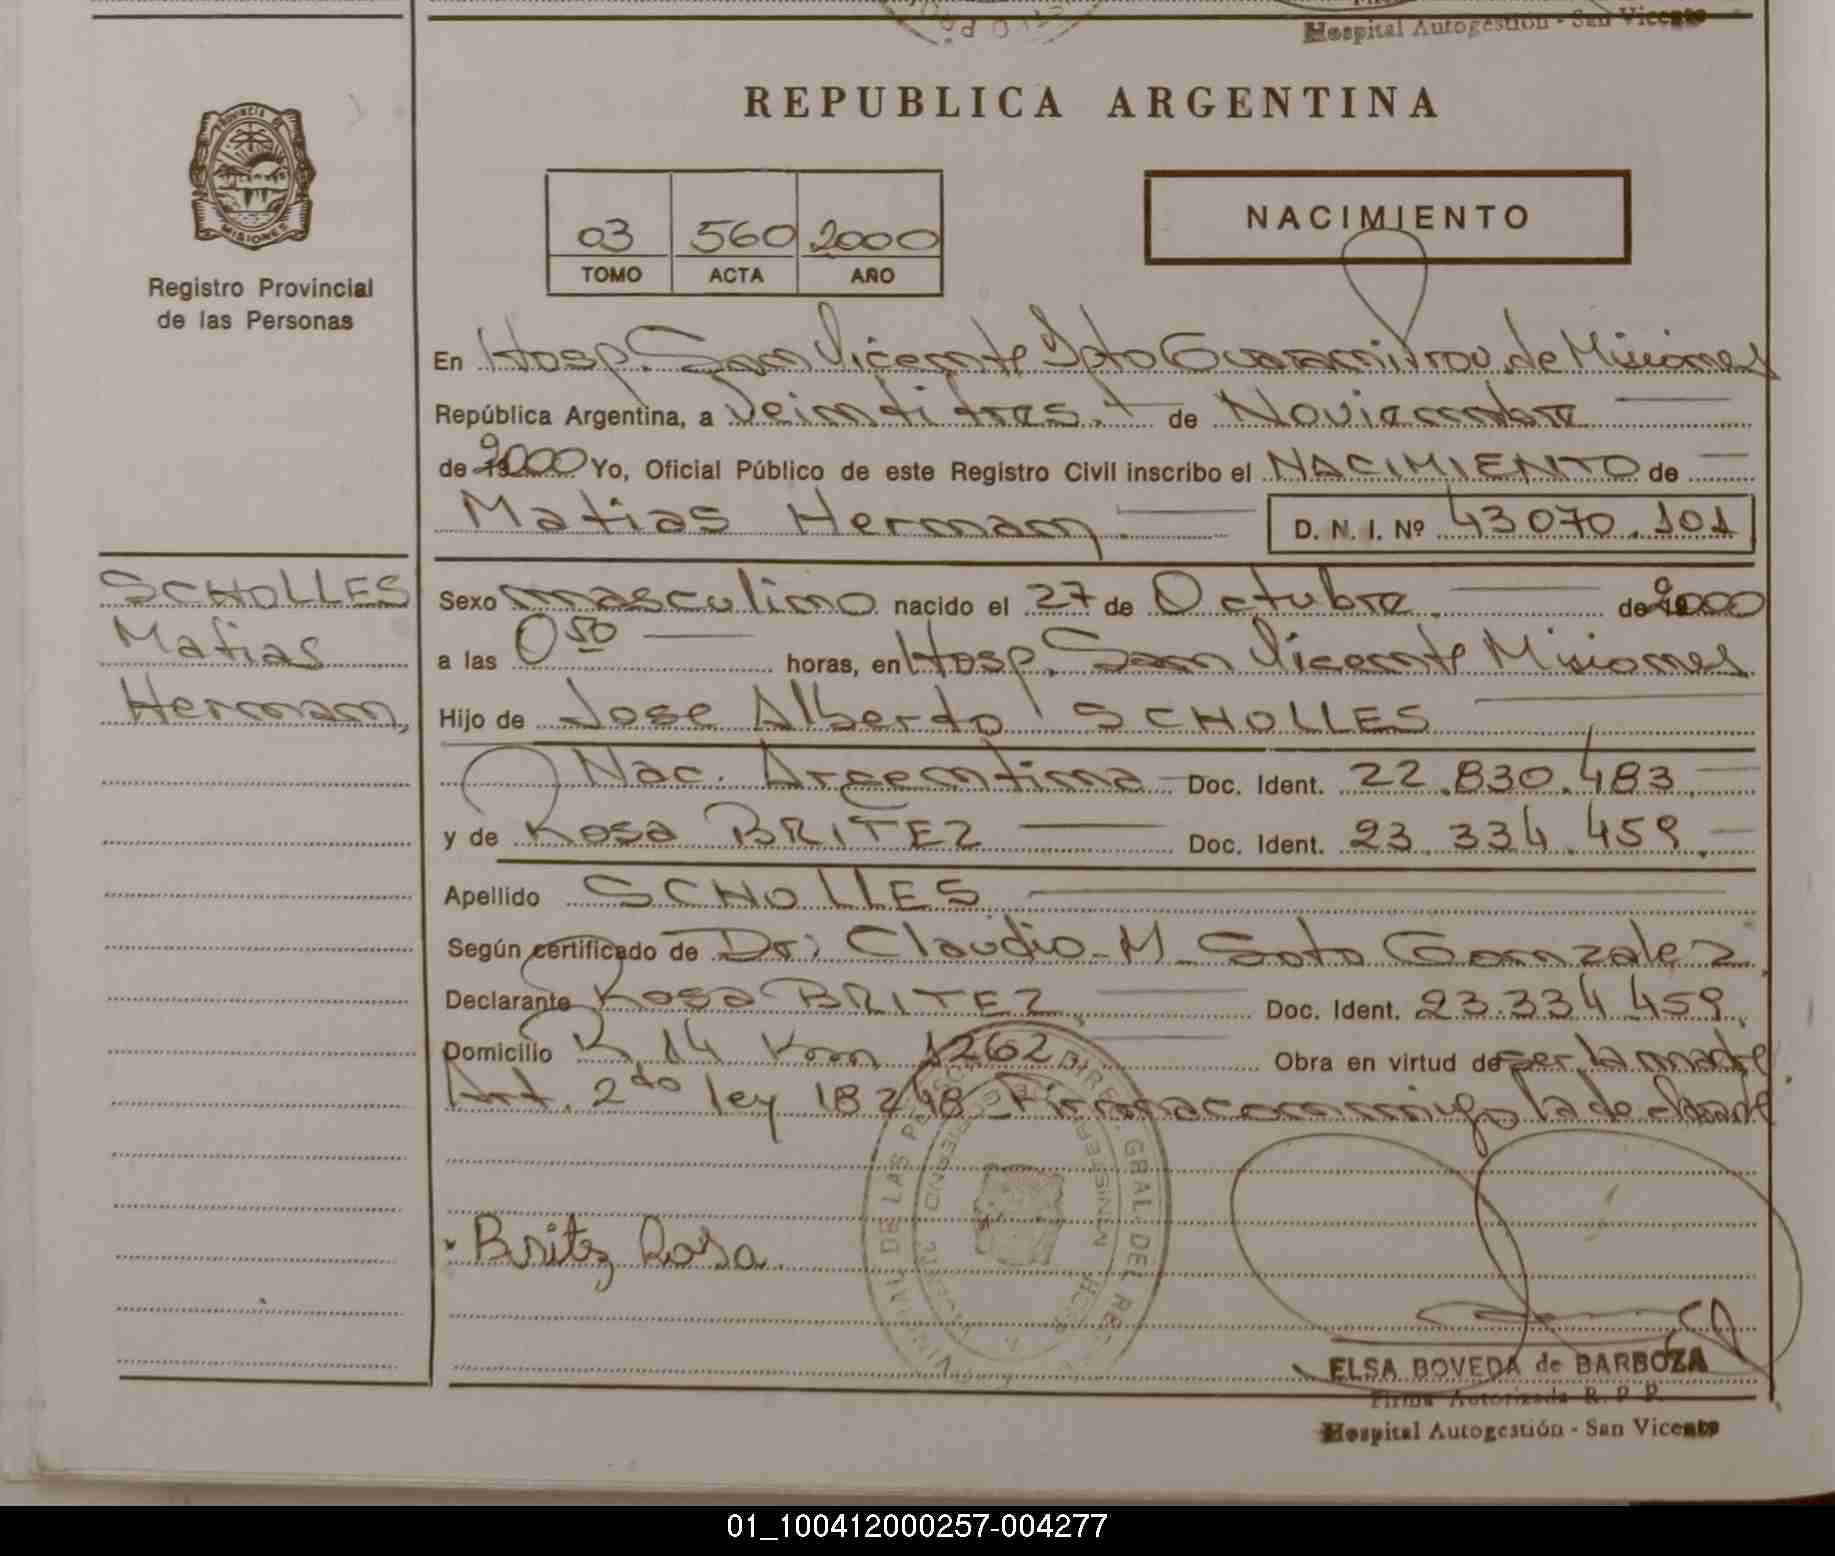 Hospital Autogestión - San Vicente
REPUBLICA ARGENTINA
PROVINCIA DE
MISIONES
Registro Provincial
de las Personas
03 560 2000
TOMO ACTA AÑO
NACIMIENTO
En Hosp. San Vicente Dpto Guarani Prov. de Misiones
República Argentina, a Veintitres. de Noviembre
de 2000 Yo, Oficial Público de este Registro Civil inscribo el NACIMIENTO de
Matias Hernan. D. N. I. Nº 43070.101
SCHOLLES
Matias
Hernan,
Sexo masculino nacido el 27 de Octubre de 2000
a las 0 50 horas, en Hosp. San Vicente Misiones
Hijo de Jose Alberto SCHOLLES
Nac. Argentina Doc. Ident. 22.830.483
y de Rosa BRITEZ Doc. Ident. 23.334.459.
Apellido SCHOLLES
Según certificado de Dr: Claudio-M-Soto Gonzalez
Declarante Rosa BRITEZ Doc. Ident. 23.334 459.
Domicilio R 14 Km 1262 Obra en virtud de ser la madre
Art. 2do ley 18248-Firma conmigo la declarante
DIREC. GRAL. DEL
DE LAS
Britez Rosa.
ELSA BOVEDA de BARBOZA
Firma Autorizada R. P. P.
Hospital Autogestión - San Vicente
01_100412000257-004277